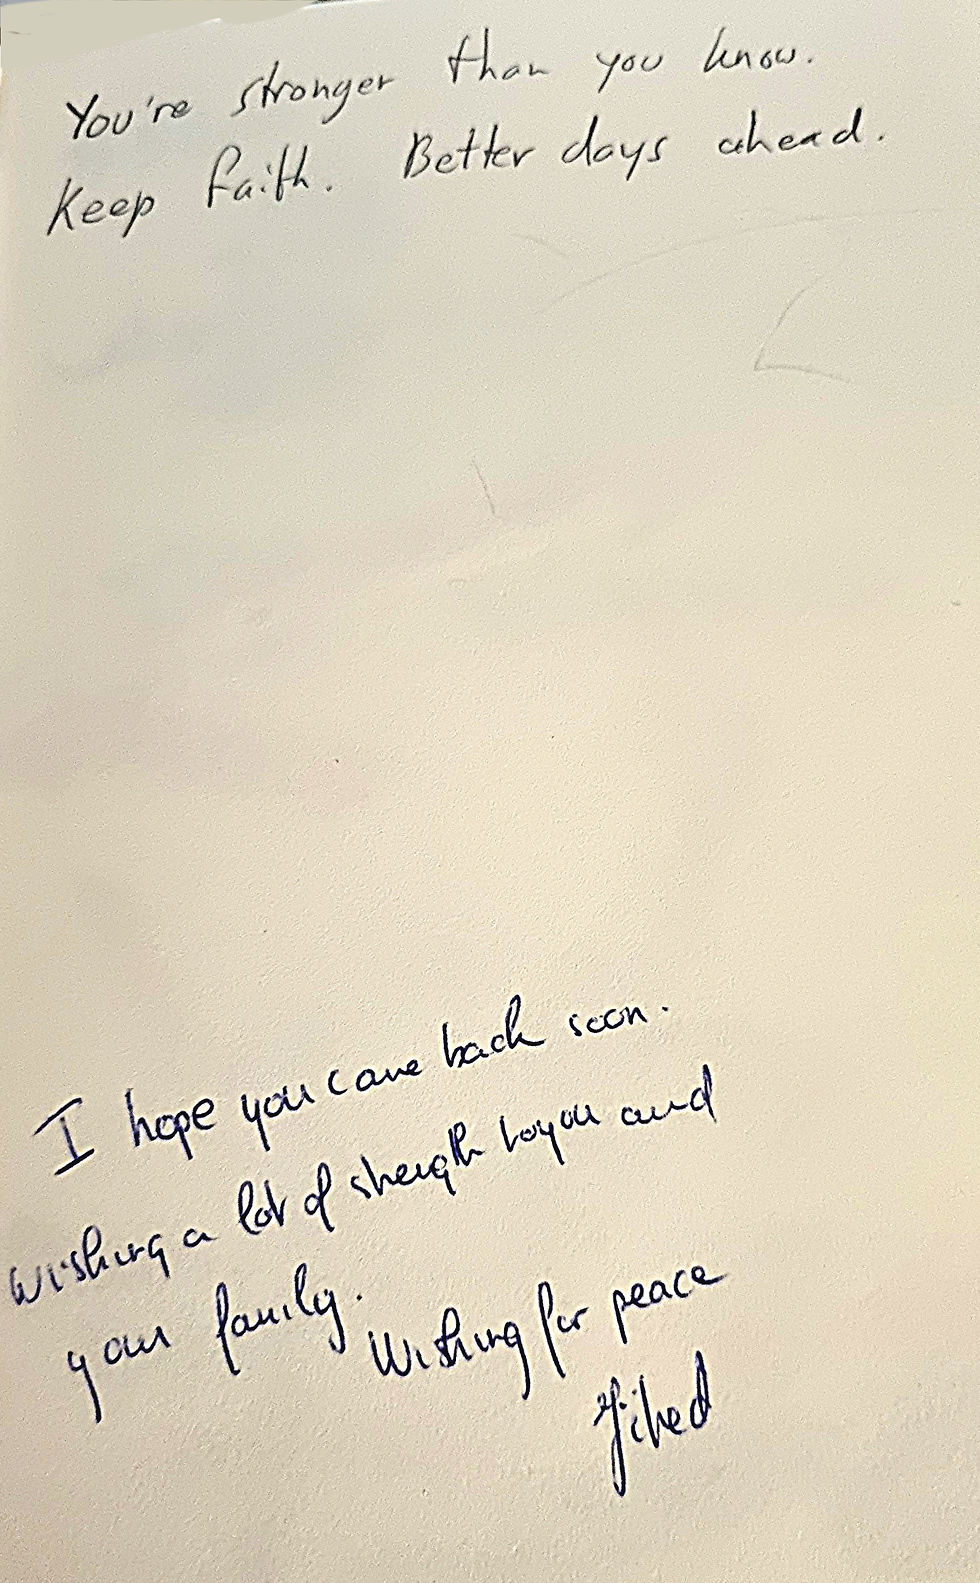 You're stronger than you know.
Keep faith. Better days ahead.
I hope you came back soon.
Wishing a lot of strength to you and
your family.
Wishing for peace
Jihed